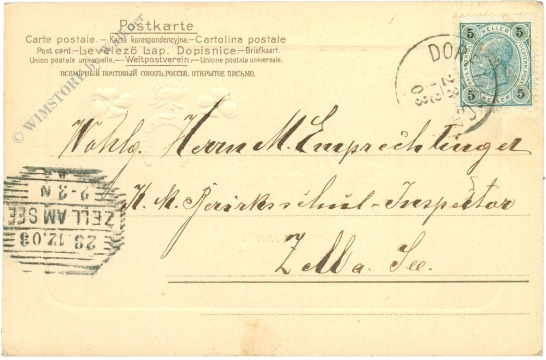 Postkarte
Carte postale. — Karta korespondencyjna. — Cartolina postale
Post card. — Levelező Lap. Dopisnice. — Briefkaart.
Union postale universelle. — Weltpostverein — Unione postale universale.
ВСЕМІРНЫЙ ПОЧТОВЫЙ СОЮЗЪ. РОССІЯ. ОТКРЫТОЕ ПИСЬМО.
© WIMSTORE by Wimmer
5 HELLER 5
5 HELLER 5
DOR
23 12 03
Wohlg. Herrn M. Emprechtinger
K. K. Bezirksschul-Inspector
Zell a. See.
ZELL AM SEE
23.12.03
2-3 N